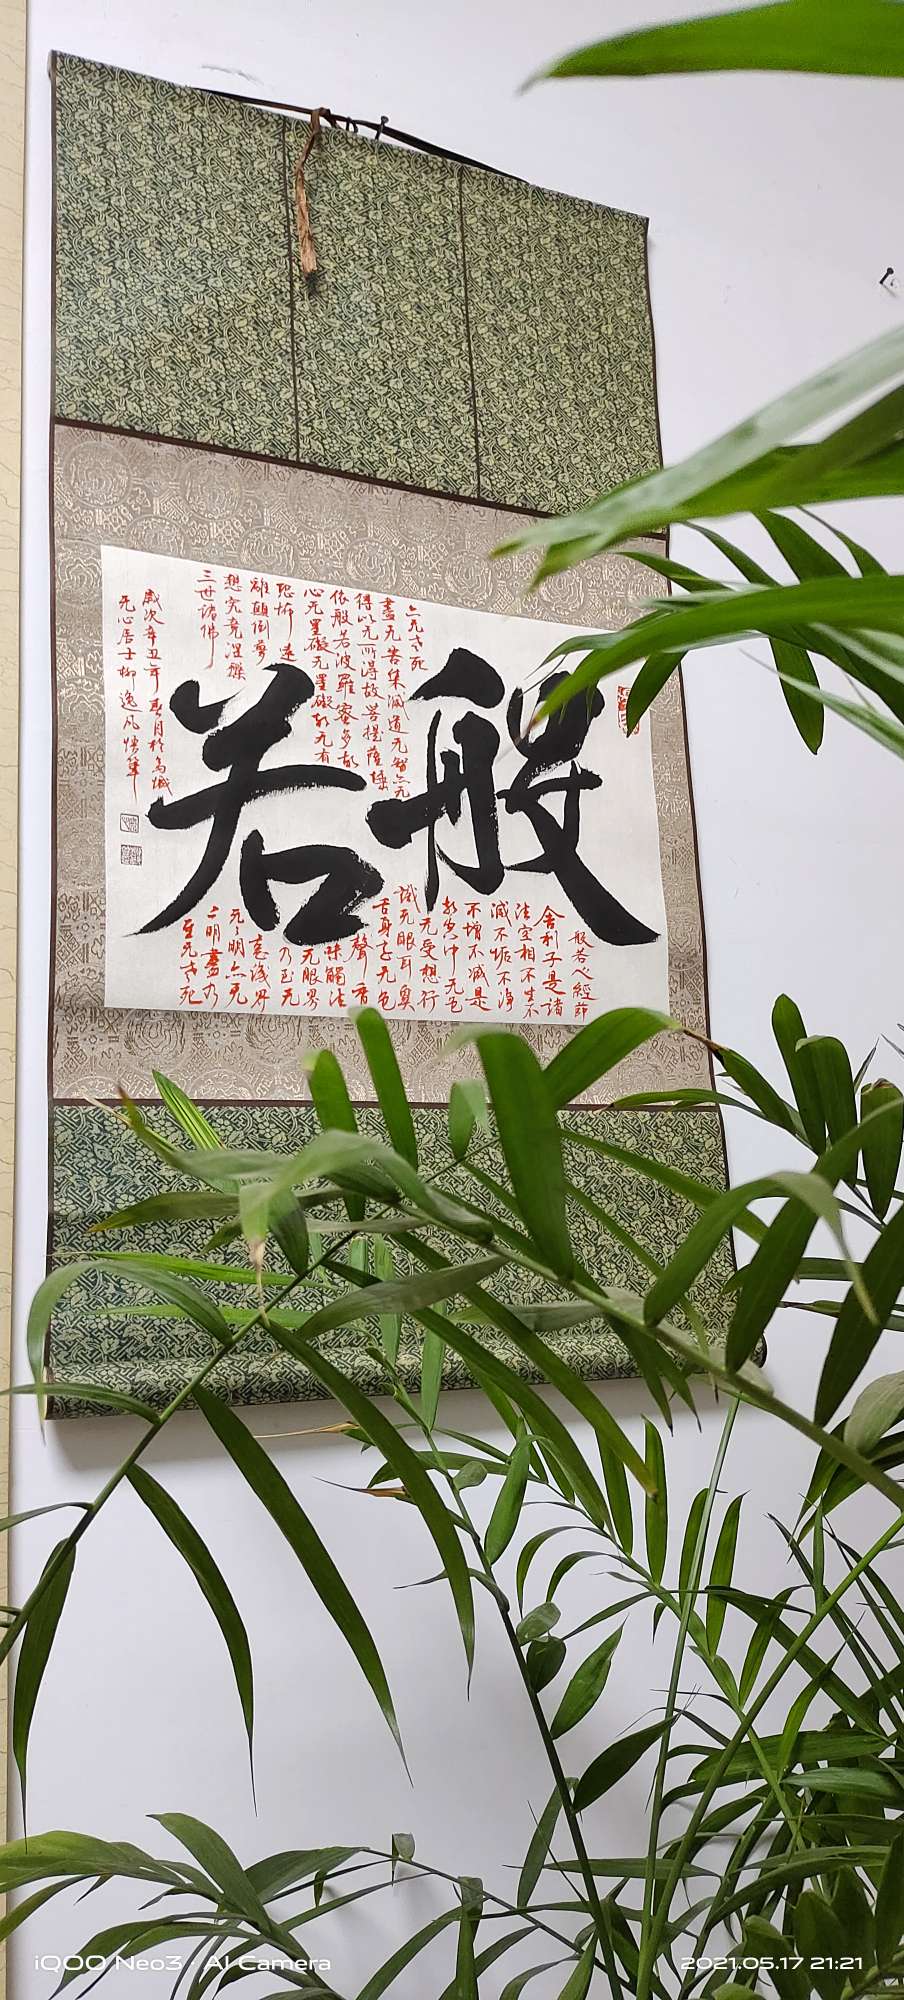 般若
般若心經節
舍利子是諸
法空相不生不
滅不垢不淨
不增不減是
故空中无色
无受想行
識无眼耳鼻
舌身意无色
聲香
味觸法
无眼界
乃至无
意識界
无无明亦无
无明盡乃
至无老死
亦无老死
盡无苦集滅道无智亦无
得以无所得故菩提薩埵
依般若波羅蜜多故
心无罣礙无罣礙故无有
恐怖遠
離顛倒夢
想究竟涅槃
三世諸佛
歲次辛丑年春月於烏城
无心居士柳逸凡
iQOO Neo3 · AI Camera
2021.05.17 21:21